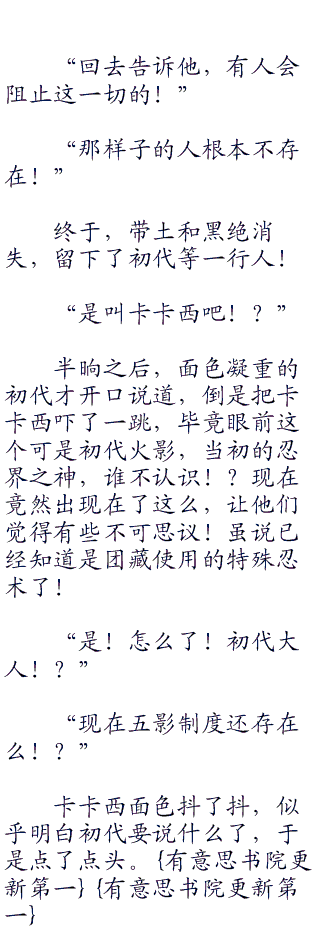 “回去告诉他，有人会
阻止这一切的！”
“那样子的人根本不存
在！”
终于，带土和黑绝消
失，留下了初代等一行人！
“是叫卡卡西吧！？”
半晌之后，面色凝重的
初代才开口说道，倒是把卡
卡西吓了一跳，毕竟眼前这
个可是初代火影，当初的忍
界之神，谁不认识！？现在
竟然出现在了这么，让他们
觉得有些不可思议！虽说已
经知道是团藏使用的特殊忍
术了！
“是！怎么了！初代大
人！？”
“现在五影制度还存在
么！？”
卡卡西面色抖了抖，似
乎明白初代要说什么了，于
是点了点头。{有意思书院更
新第一}{有意思书院更新第
一}